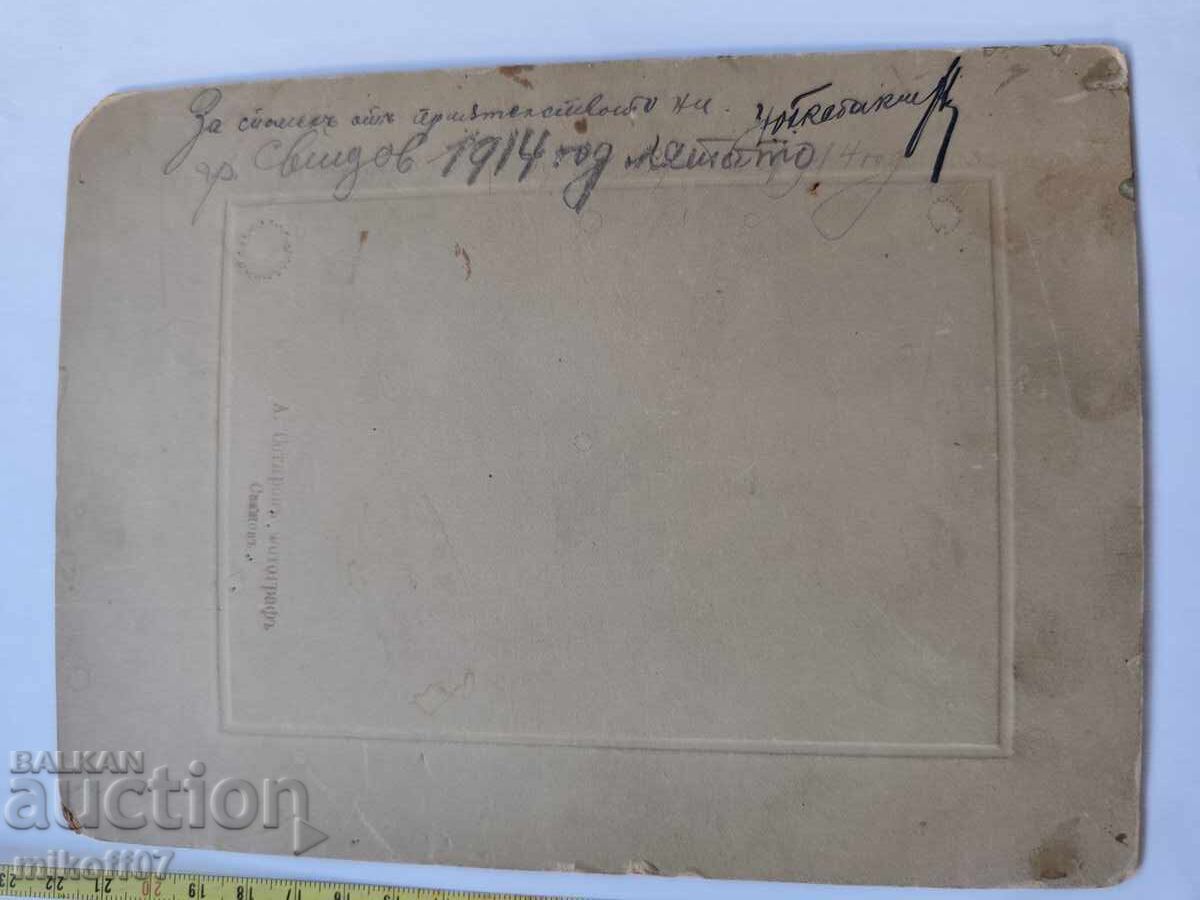 За споменъ отъ приятелството ни.
гр. Свищов 1914 год лятото
А. фотографъ
Свищовъ.
BALKAN
auction
mikoff07
23 22 21 20 19 18 17 16 15